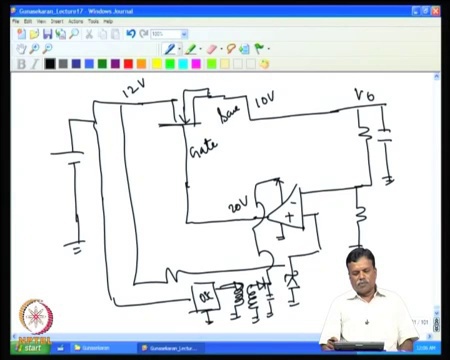 Gunasekaran_Lecture17 - Windows Journal
File Edit View Insert Actions Tools Help
100%
B I
12V
10V
Vo
Source
Gate
20V
-
+
OSC
NPTEL
start
Gunasekaran
Gunasekaran_Lectu...